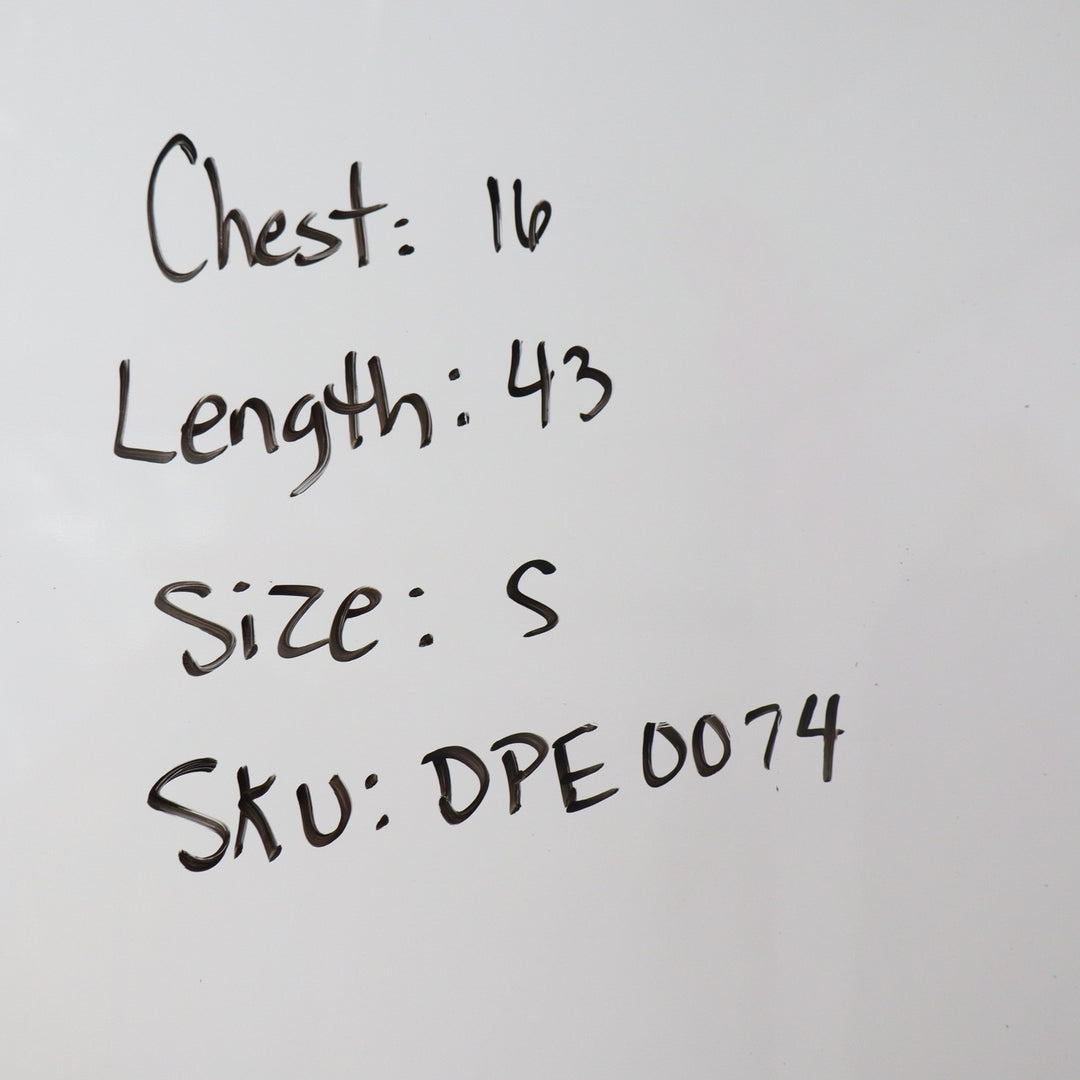 Chest: 16
Length: 43
Size: S
SKU: DPE 0074